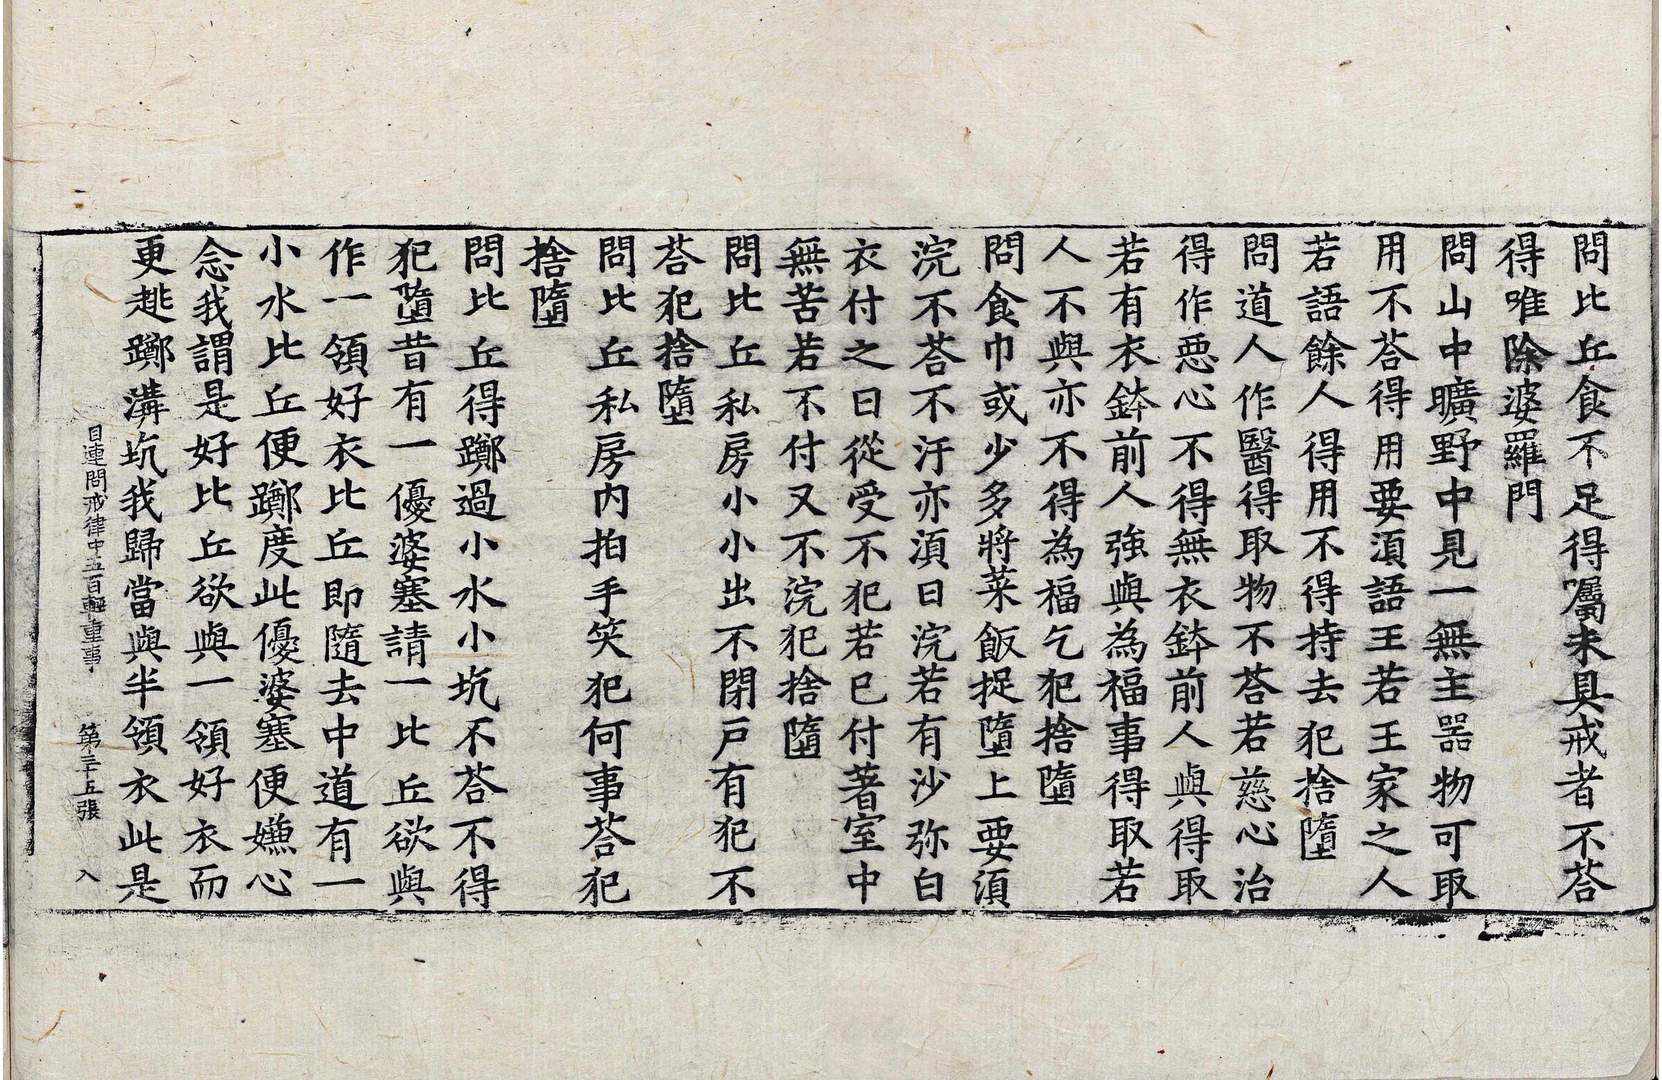 問比丘食不足得囑未具戒者不荅
得唯除婆羅門
問山中曠野中見一無主器物可取
用不荅得用要湏語王若王家之人
若語餘人得用不得持去犯捨墮
問道人作醫得取物不荅若慈心治
得作惡心不得無衣鉢前人與得取
若有衣鉢前人強與為福事得取若
人不與亦不得為福乞犯捨墮
問食巾或少多將菜飯捉墮上要湏
浣不荅不汙亦湏日浣若有沙弥白
衣付之日從受不犯若已付著室中
無苦若不付又不浣犯捨墮
問比丘私房小小出不閉戸有犯不
荅犯捨墮
問比丘私房内拍手笑犯何事荅犯
捨墮
問比丘得躑過小水小坑不荅不得
犯墮昔有一優婆塞請一比丘欲與
作一領好衣比丘即隨去中道有一
小水比丘便躑度此優婆塞便嫌心
念我謂是好比丘欲與一領好衣而
更趒躑溝坑我歸當與半領衣此是
目連問戒律中五百輕重事 第三十五張 入